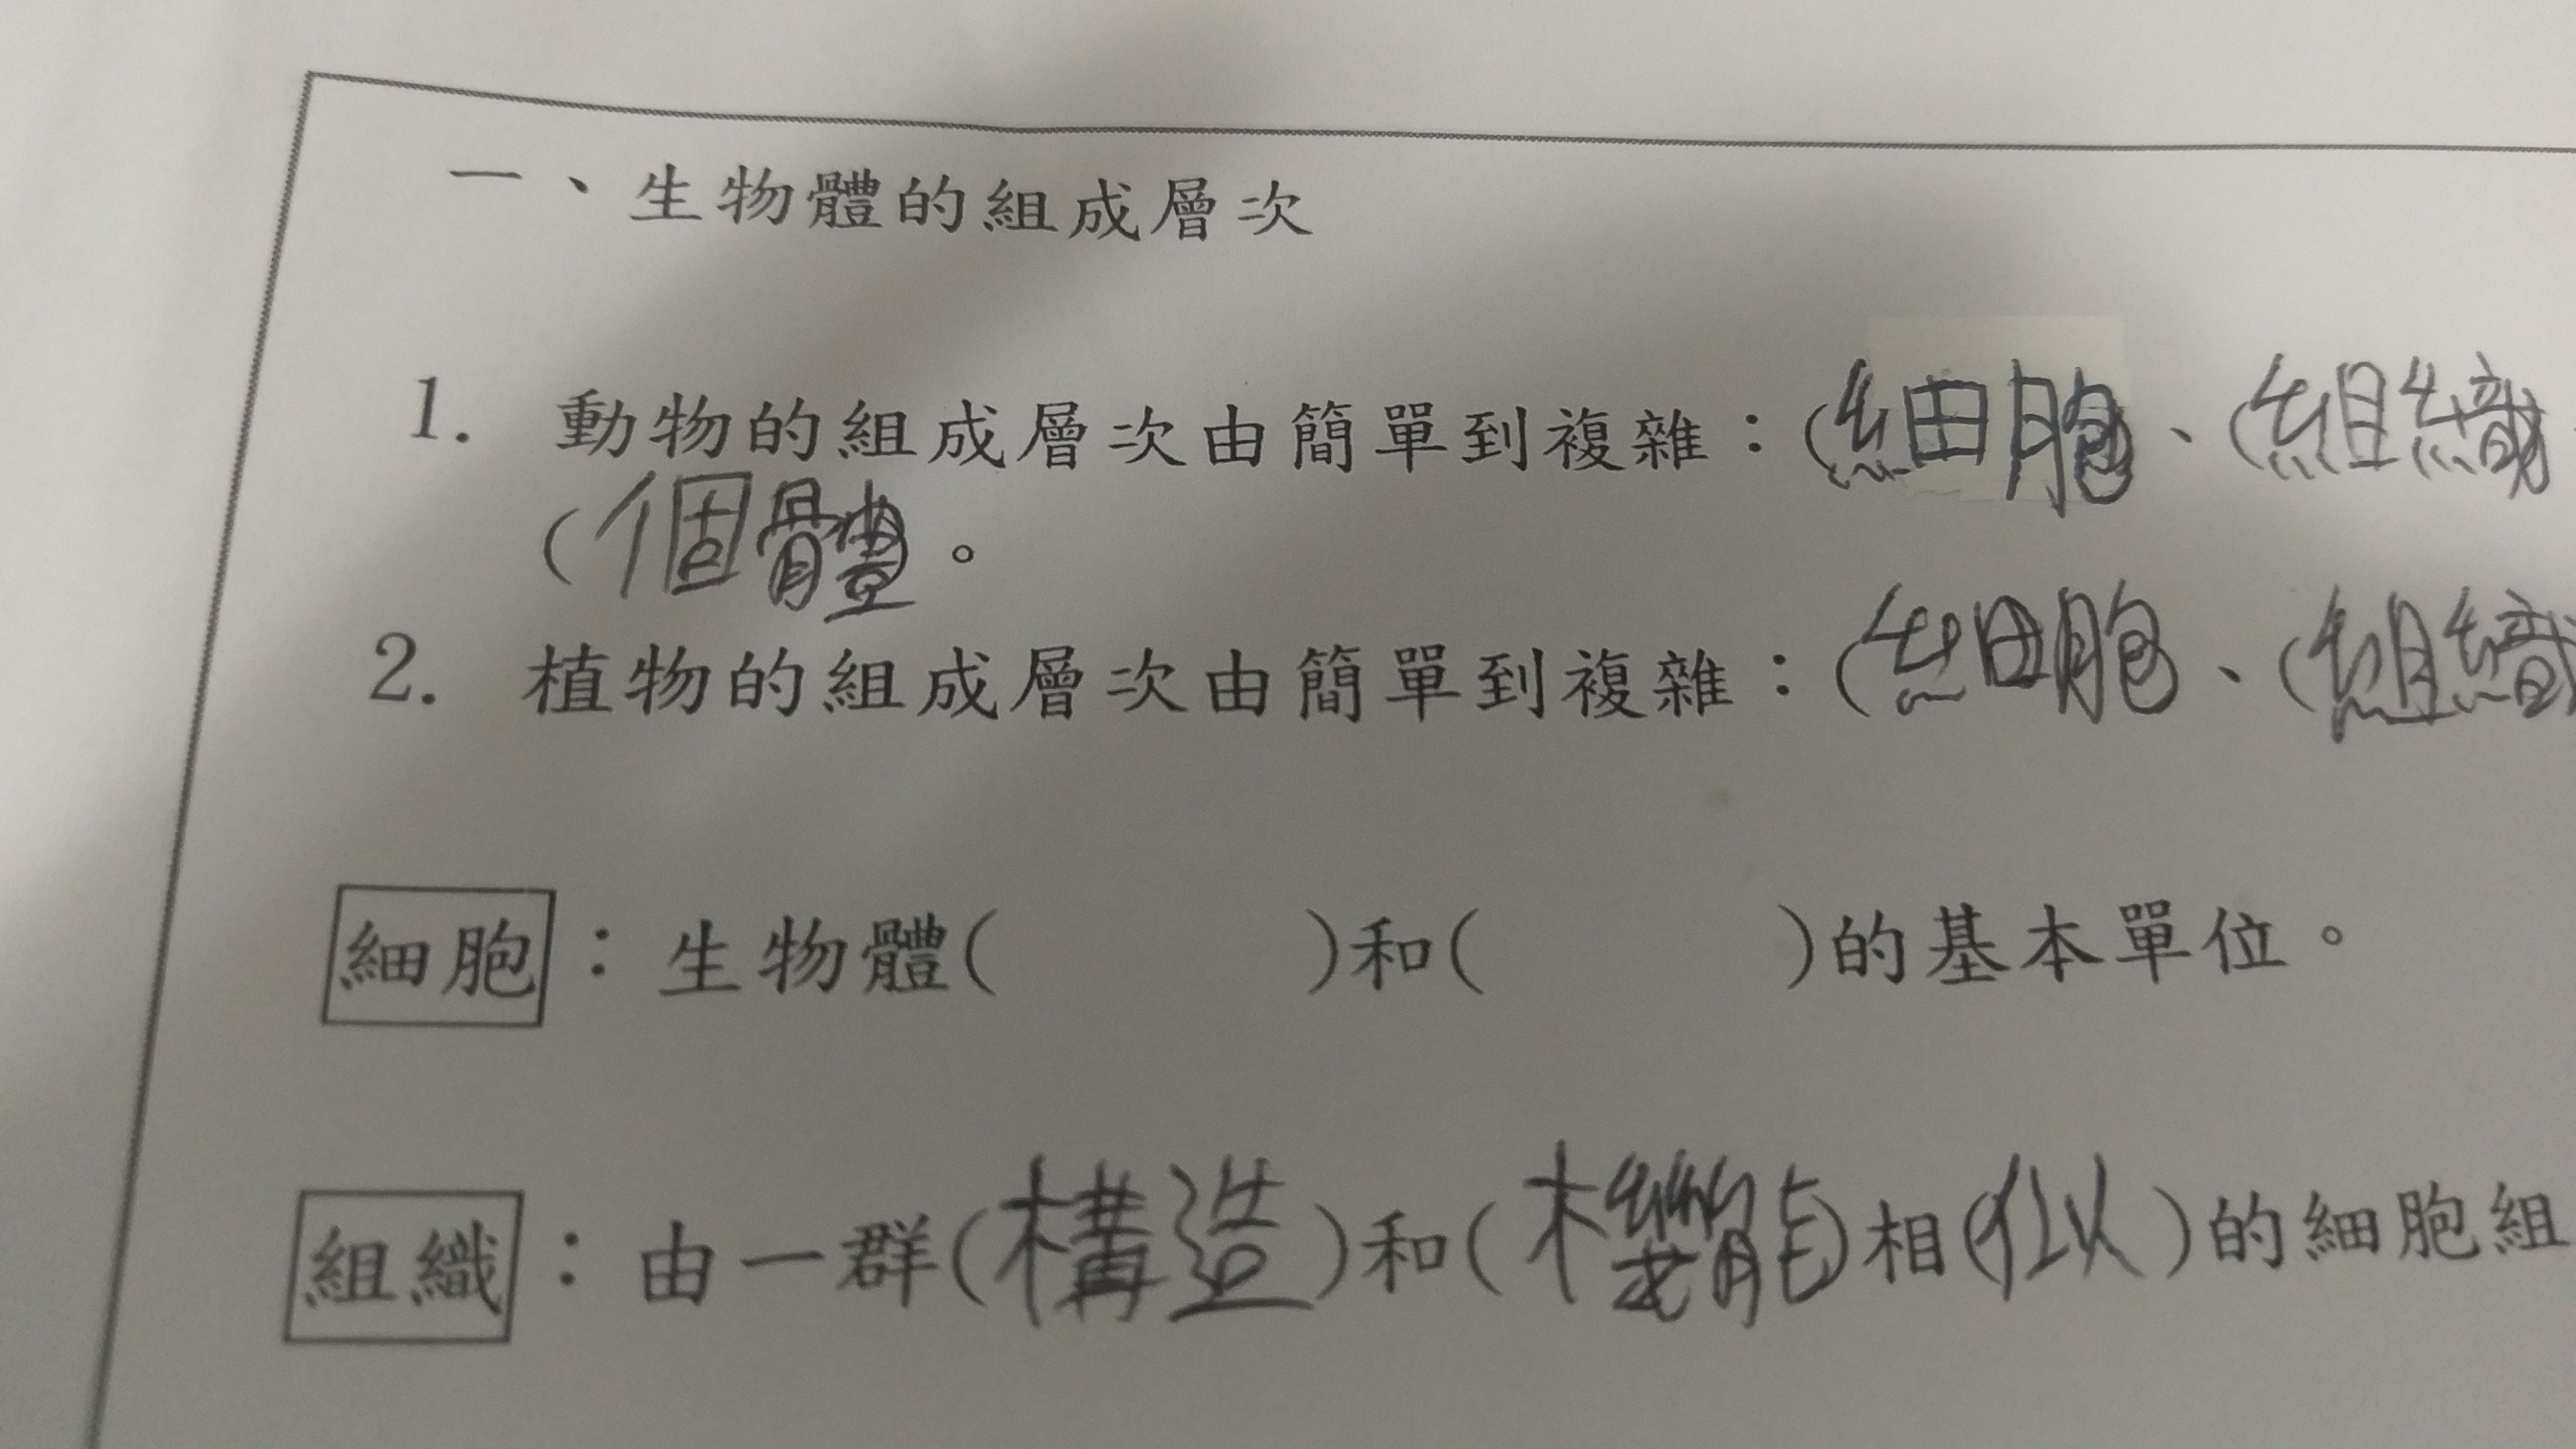 一、生物體的組成層次
1. 動物的組成層次由簡單到複雜：(細胞、(組織
(個體。
2. 植物的組成層次由簡單到複雜：(細胞、(組織
細胞：生物體(　　　)和(　　　)的基本單位。
組織：由一群(構造)和(機能)相(似)的細胞組